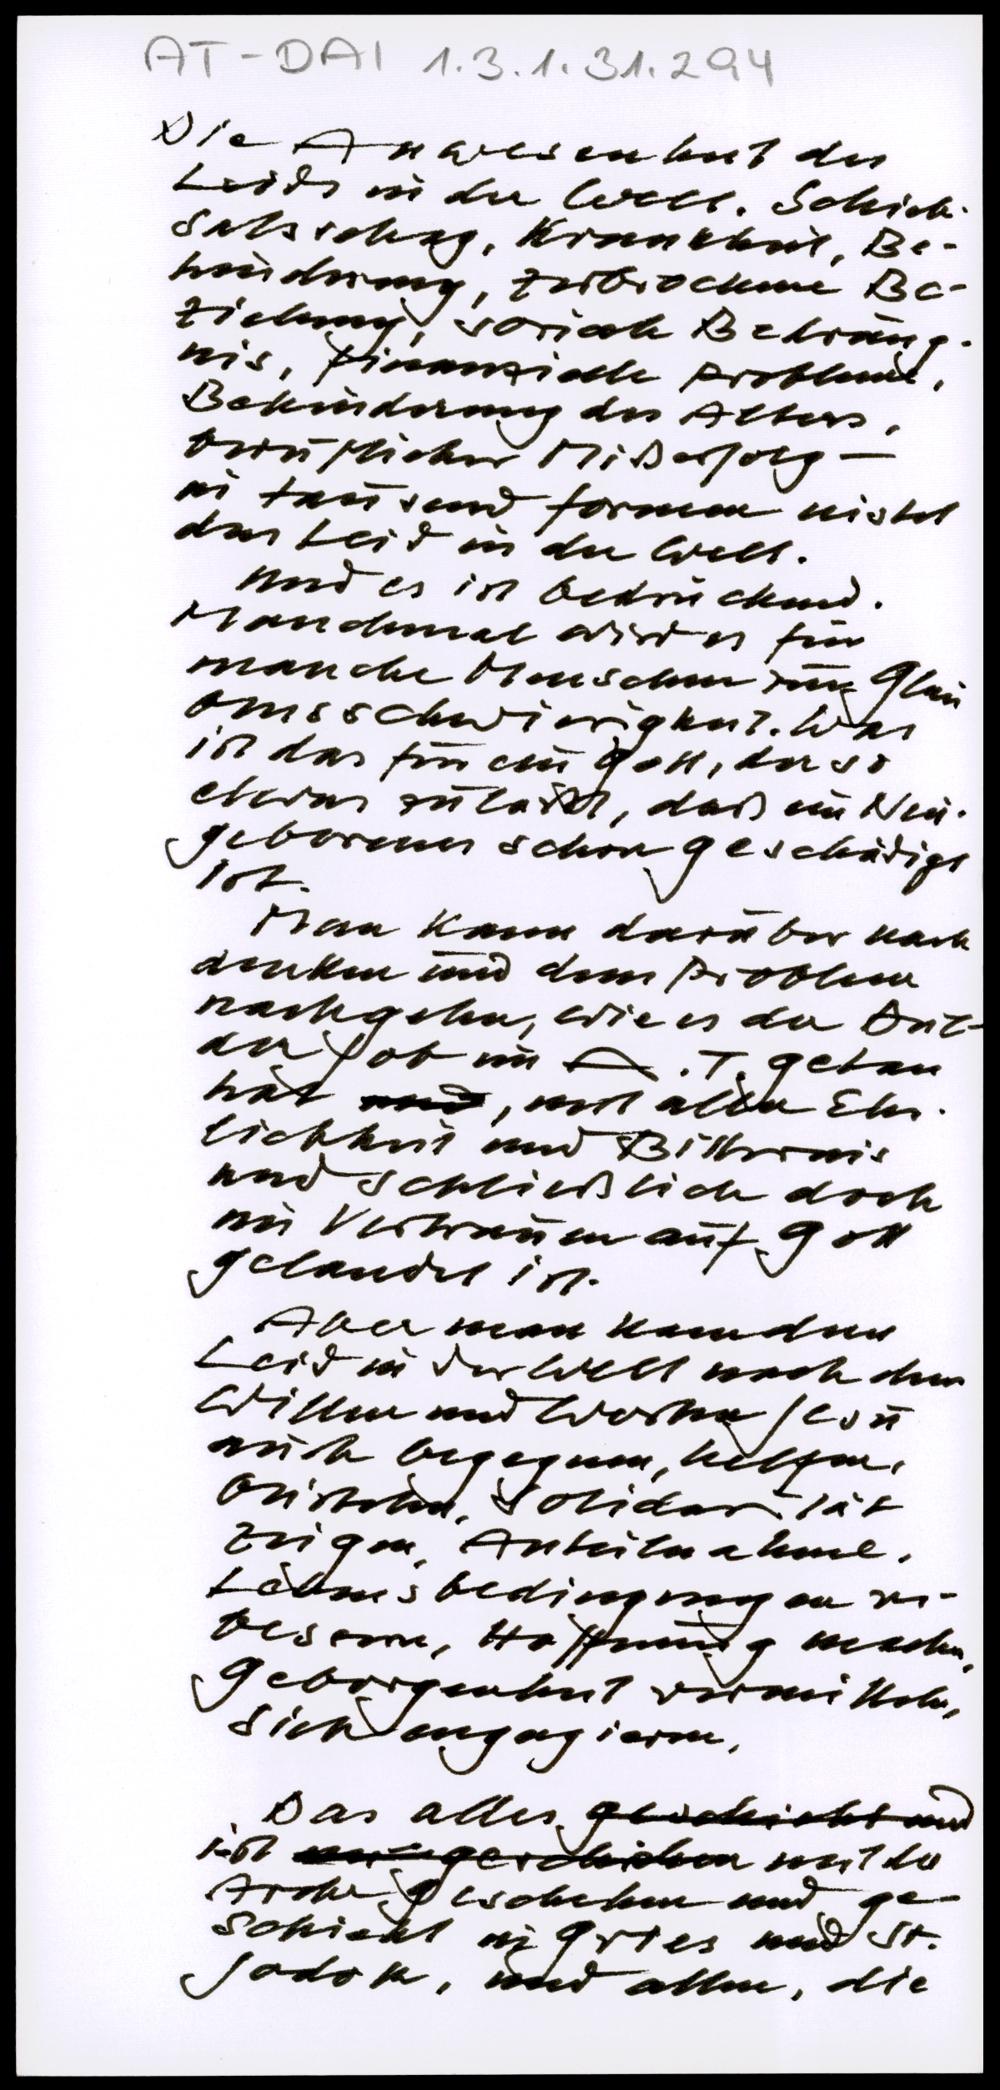 AT-DAI 1.3.1.31.294
Die Anwesenheit des
Leids in der Welt. Schick-
salsschlag, Krankheit, Be-
hinderung, zerbrochene Be-
ziehung, soziale Bedräng-
nis, finanzielle Probleme,
Behinderung des Alters,
beruflicher Mißerfolg –
in tausend Formen nistet
das Leid in der Welt.
Und es ist bedrückend.
Manchmal wird es für
manche Menschen zur Glau
bensschwierigkeit. Was
ist das für ein Gott, der so
etwas zuläßt, daß ein Neu-
geborenes schon geschädigt
ist.
Man kann darüber nach
denken und dem Problem
nachgehen, wie es der
der Job im A.T. getan
hat und, mit aller Ehr-
lichkeit und Bitternis
und schließlich doch
im Vertrauen auf Gott
gelandet ist.
Aber man kann dem
Leid in der Welt nach dem
Willen und Worten Jesu
auch begegnen, helfen,
beistehen, Solidarität
zeigen, Anteilnahme,
Lebensbedingungen ver-
bessern, Hoffnung machen,
Geborgenheit vermitteln,
sich engagieren.
Das alles geschieht und
ist geschehen mit der
Arche geschehen und ge-
schieht in Gries und St.
Jodok, und allen, die